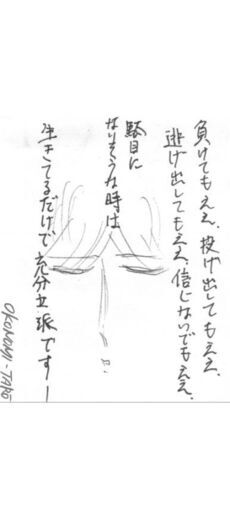 負けてもええ、投げ出してもええ、
逃げ出してもええ、信じないでもええ、
駄目に
なりそうな時は
生きてるだけで充分立派ですー
OKONOMI-TARO